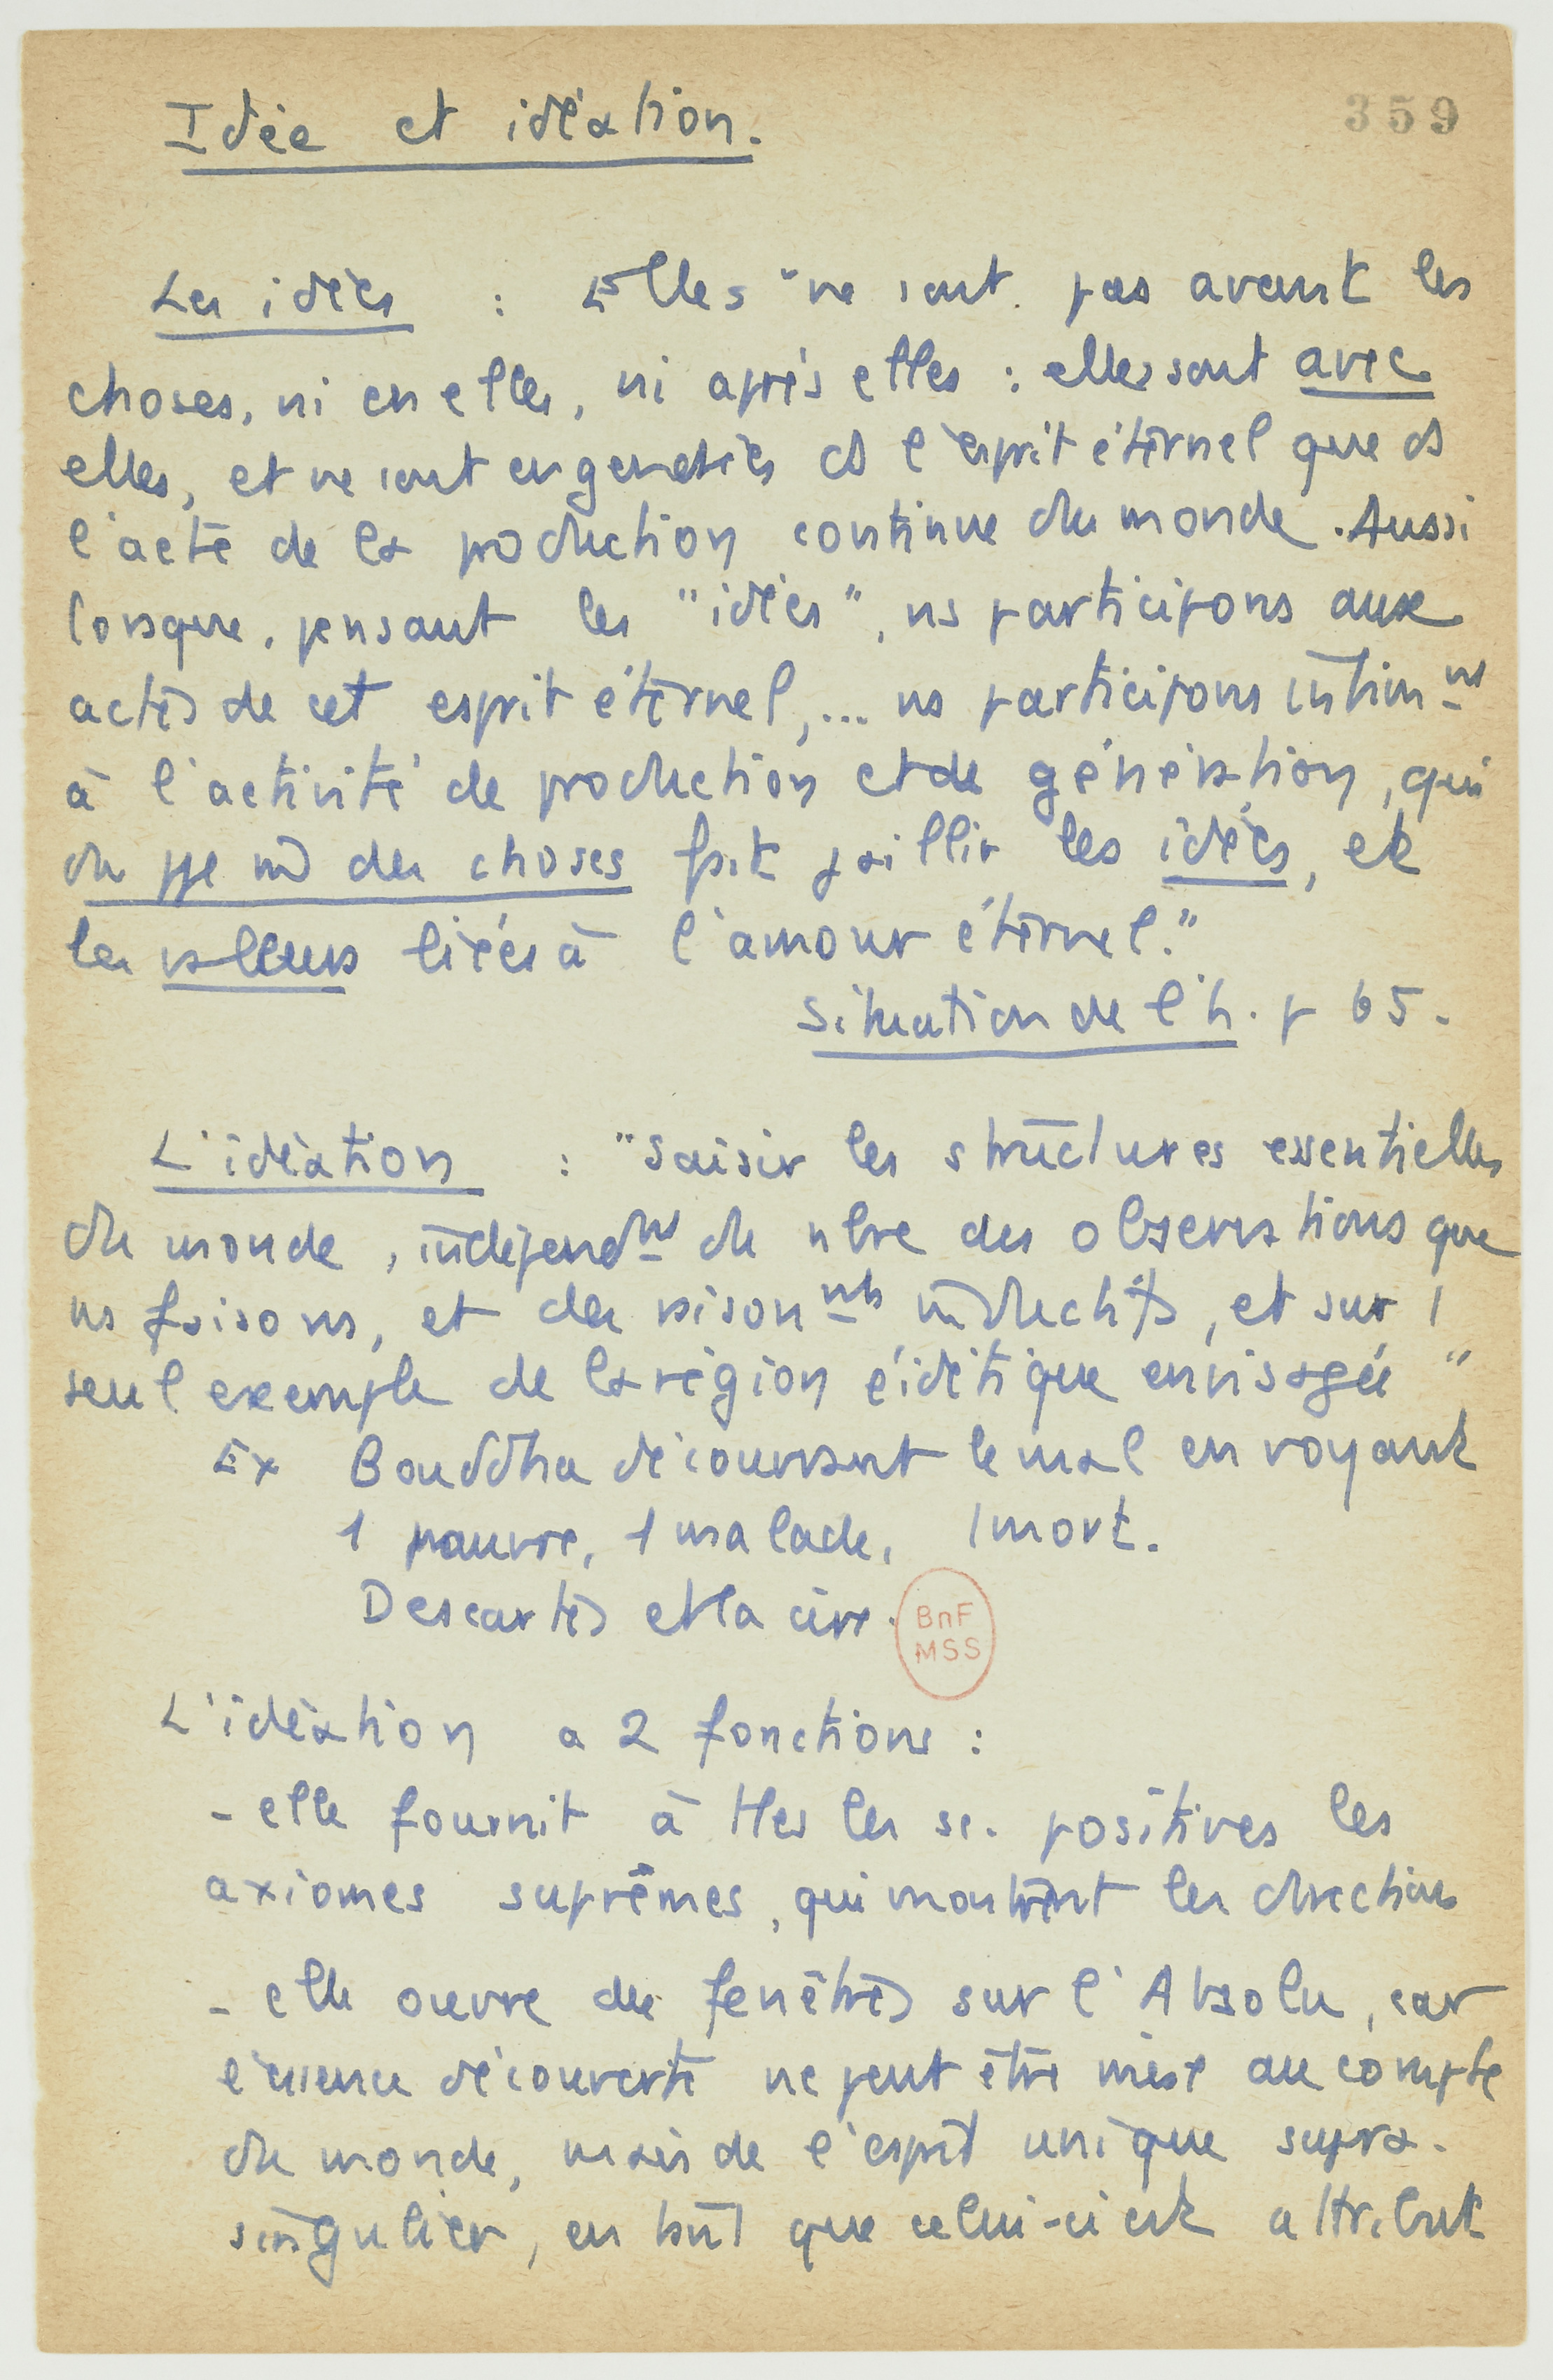 359
Idée et idéation.
Les idées : Elles "ne sont pas avant les
choses, ni en elles, ni après elles : elles sont avec
elles, et ne sont engendrées ds l'esprit éternel que ds
l'acte de la production continue du monde. Aussi
lorsque, pensant les "idées", ns participons aux
actes de cet esprit éternel, ... ns participons intimnt
à l'activité de production et de génération, qui
du ppe m̄ des choses fait jaillir les idées, et
les valeurs liées à l'amour éternel."
Situation de l'h. p 65.
L'idéation : "saisir les structures essentielles
du monde, indépendnt du nbre des observations que
ns faisons, et des raisonnnts inductifs, et sur 1
seul exemple de la région eidétique envisagée"
Ex Bouddha découvrant le mal en voyant
1 pauvre, 1 malade, 1 mort.
Descartes et la cire.
BnF
MSS
L'idéation a 2 fonctions :
- elle fournit à ttes les sc. positives les
axiomes suprêmes, qui montrent les directions
- elle ouvre des fenêtres sur l'Absolu, car
l'essence découverte ne peut être mise au compte
du monde, mais de l'esprit unique supra-
singulier, en tant que celui-ci est attribut